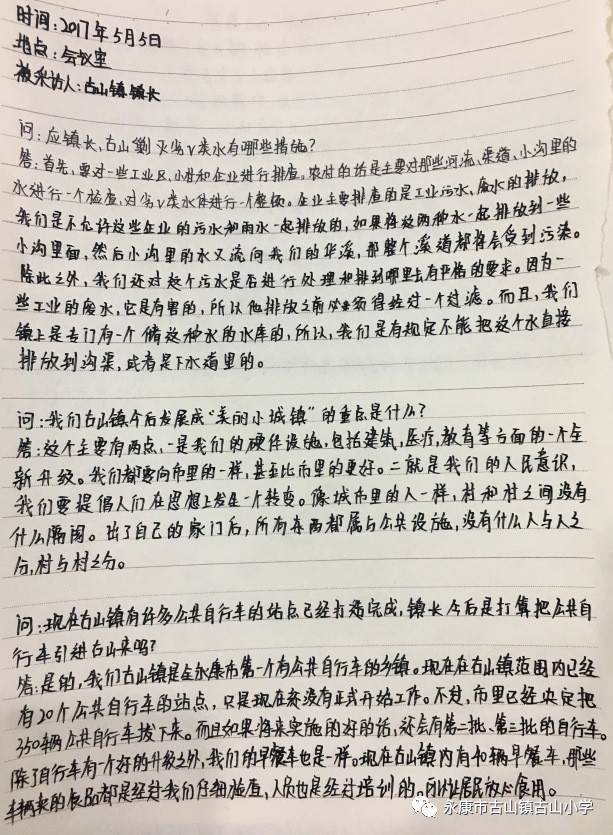 时间:2017年5月5日
地点:会议室
被采访人:古山镇镇长
问:应镇长,古山剿灭劣V类水有哪些措施?
答:首先,要对一些工业区、小学和企业进行排查。农村的话是主要对那些河流、渠道、小沟里的
水进行一个检查,对劣V类水体进行一个整改。企业主要排查的是工业污水、废水的排放,
我们是不允许这些企业的污水和雨水一起排放的,如果将这两种水一起排放到一些
小沟里面,然后小沟里的水又流向我们的华溪,那整个溪道都将会受到污染。
除此之外,我们还对这个污水是否进行处理和排到哪里去有严格的要求。因为一
些工业的废水,它是有害的,所以他排放之前必须得经过一个过滤。而且,我们
镇上是专门有一个储这种水的水库的,所以,我们是有规定不能把这个水直接
排放到沟渠,或者是下水道里的。
问:我们古山镇今后发展成“美丽小城镇”的重点是什么?
答:这个主要有两点,一是我们的硬件设施,包括建筑,医疗,教育等方面的一个全
新升级。我们都要向市里的一样,甚至比市里的更好。二就是我们的人民意识,
我们要提倡人们在思想上发生一个转变。像城市里的人一样,村和村之间没有
什么隔阂。出了自己的家门后,所有东西都属与公共设施,没有什么人与人之
分,村与村之分。
问:现在古山镇有许多公共自行车的站点已经打造完成,镇长今后是打算把公共自
行车引进古山来吗?
答:是的,我们古山镇是全永康市第一个有公共自行车的乡镇。现在在古山镇范围内已经
有20个公共自行车的站点,只是现在还没有正式开始工作。不过,市里已经决定把
350辆公共自行车拨下来。而且如果将来实施的好的话,还会有第二批、第三批的自行车。
除了自行车有一个好的升级之外,我们的早餐车也是一样。现在古山镇内有10辆早餐车,那些
车辆卖的食品都是经过我们仔细检查,人员也是经过培训的。可以让居民放心食用。
永康市古山镇古山小学